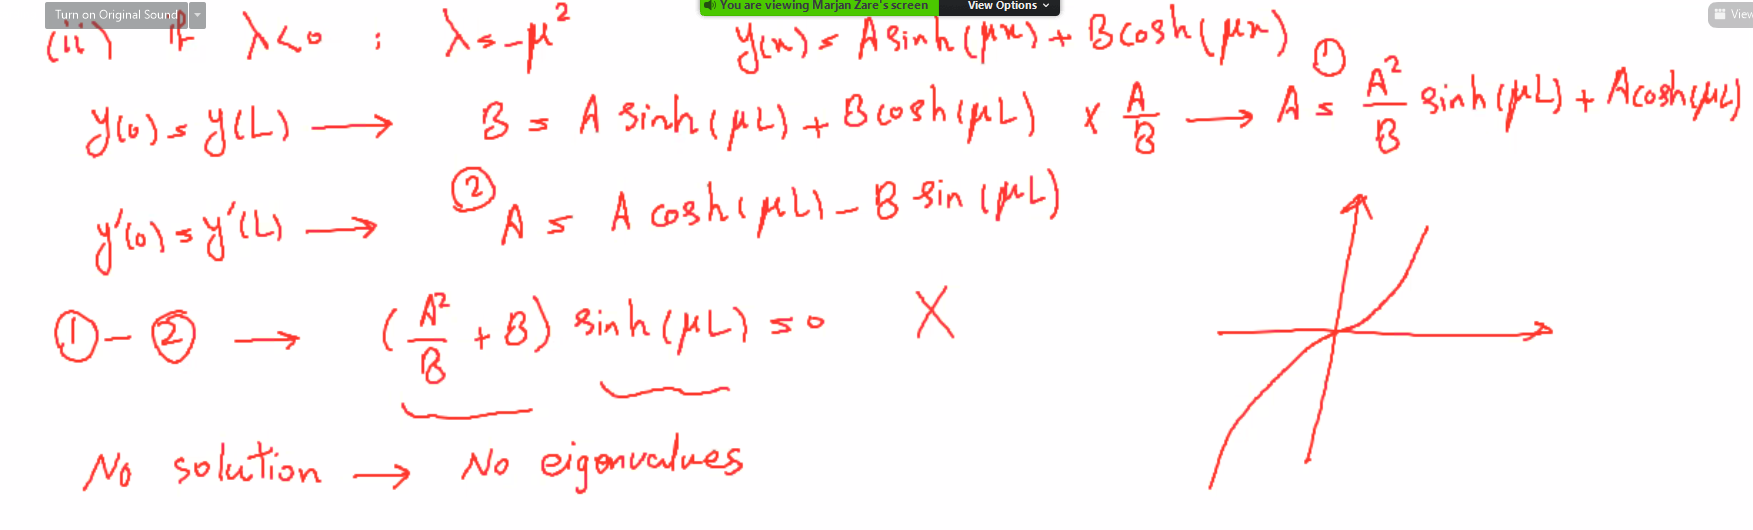 Turn on Original Sound
You are viewing Marjan Zare's screen
View Options
View
(ii) if λ<0 : λ=-μ² y(x) = A sinh(μx) + B cosh(μx)
y(0) = y(L) → B = A sinh(μL) + B cosh(μL) × A/B → ① A = A²/B sinh(μL) + A cosh(μL)
y'(0) = y'(L) → ② A = A cosh(μL) - B sin(μL)
① - ② → (A²/B + B) sinh(μL) = 0 X
No solution → No eigenvalues